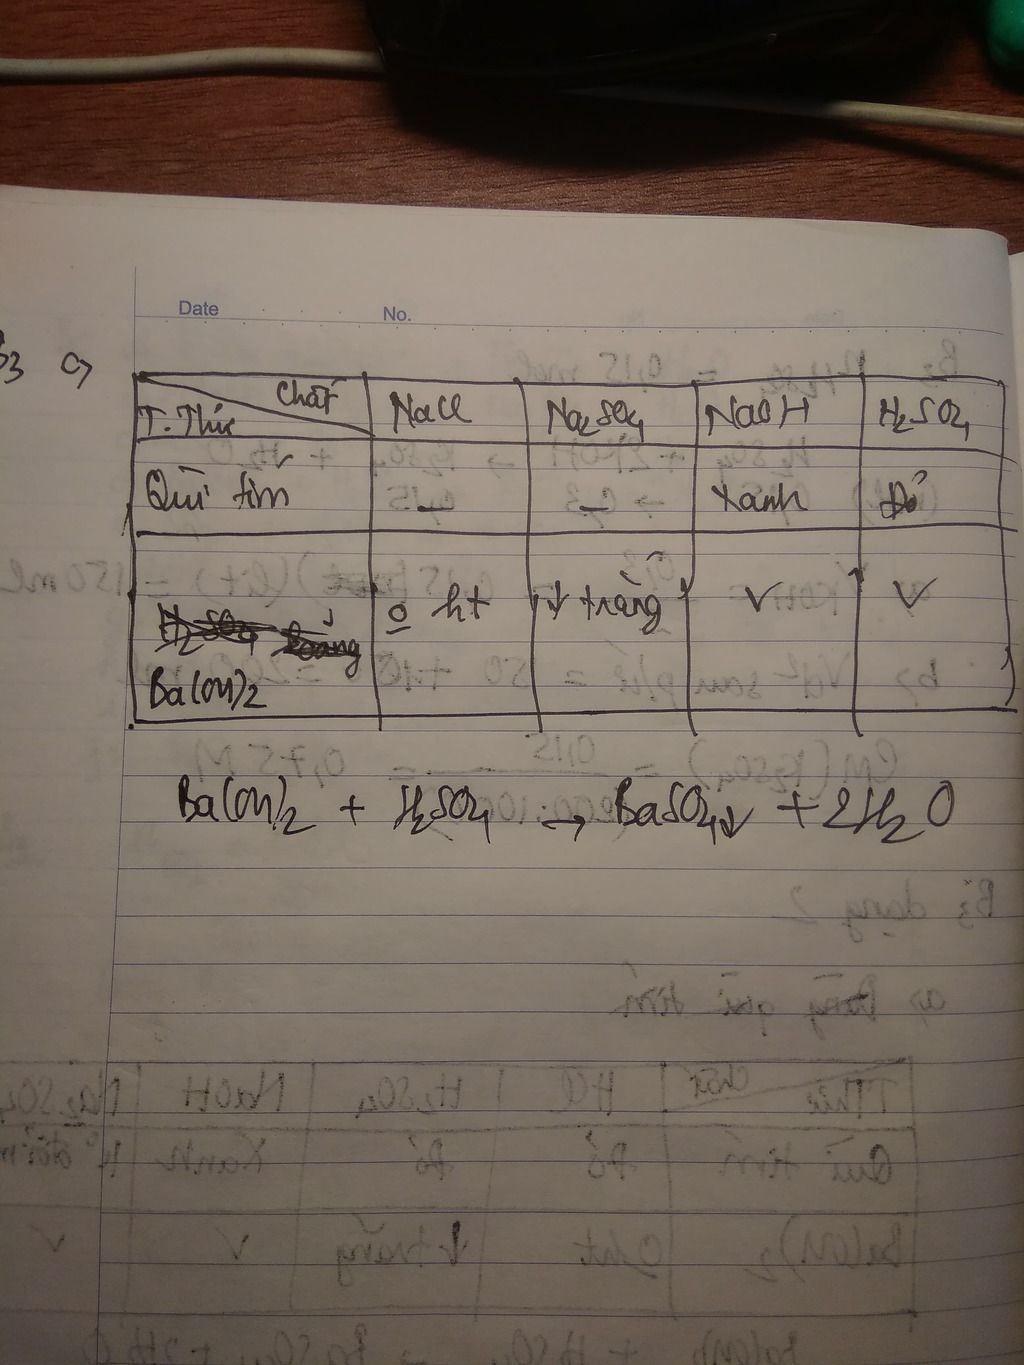 Date No.
B3 a,
Chất
T.Thử NaCl Na2SO4 NaOH H2SO4
Quì tím _ _ Xanh Đỏ
H2SO4 loãng o ht ↓ trắng ✓ ✓
Ba(OH)2
Ba(OH)2 + H2SO4 → BaSO4↓ + 2H2O